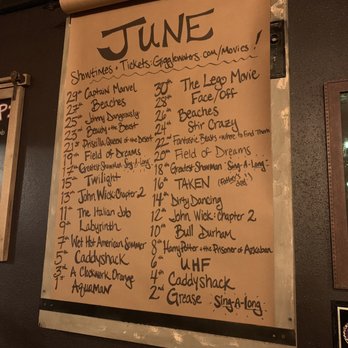 JUNE
Showtimes + Tickets: Gigglewaters.com/movies!
29th Captain Marvel
27th Beaches
25th Johnny Dangerously
23rd Beauty + the Beast
21st Priscilla, Queen of the Desert
19th Field of Dreams
17th Greatest Showman Sing-A-Long
15th Twilight
13th John Wick: Chapter 2
11th The Italian Job
9th Labyrinth
7th Wet Hot American Summer
5th Caddyshack
3rd A Clockwork Orange
1st Aquaman
30th The Lego Movie
28th Face/Off
26th Beaches
24th Stir Crazy
22nd Fantastic Beasts + where to Find Them
20th Field of Dreams
18th Greatest Showman Sing-A-Long
16th TAKEN (Father's Day)
14th Dirty Dancing
12th John Wick: Chapter 2
10th Bull Durham
8th Harry Potter + the Prisoner of Azkaban
6th UHF
4th Caddyshack
2nd Grease Sing-A-Long